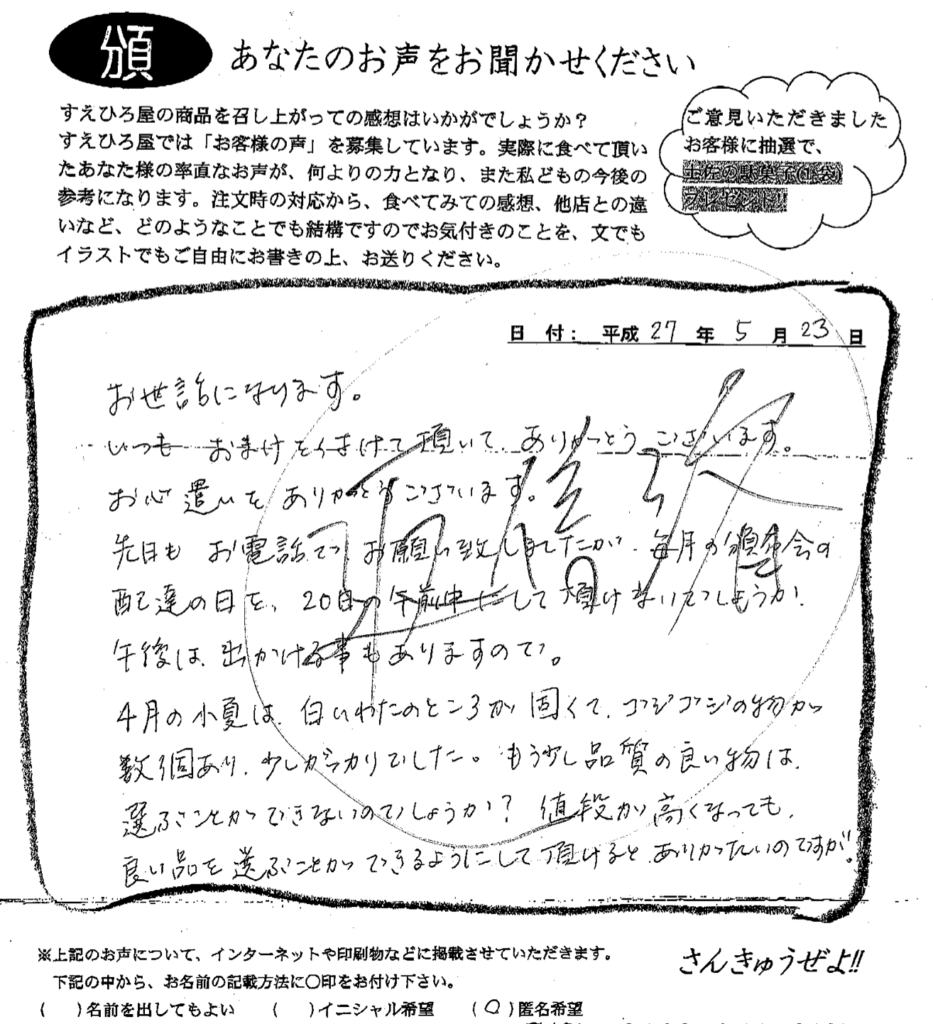 頒
あなたのお声をお聞かせください
すえひろ屋の商品を召し上がっての感想はいかがでしょうか？
すえひろ屋では「お客様の声」を募集しています。実際に食べて頂い
たあなた様の率直なお声が、何よりの力となり、また私どもの今後の
参考になります。注文時の対応から、食べてみての感想、他店との違
いなど、どのようなことでも結構ですのでお気付きのことを、文でも
イラストでもご自由にお書きの上、お送りください。
ご意見いただきました
お客様に抽選で、
土佐の駄菓子(1袋)
プレゼント!!
日 付： 平成 27 年 5 月 23 日
お世話になります。
いつも おまけをつけて頂いて、ありがとうございます。
お心遣いをありがとうございます。
先日も お電話で お願い致しましたが、毎月の頒布会の
配達の日を、20日の午前中にして頂けないでしょうか、
午後は、出かける事もありますので。
4月の小夏は、白いわたのところが固くて、ゴジゴジの物が
数個あり、少しがっかりでした。もう少し品質の良い物は、
選ぶことができないのでしょうか？ 値段が高くなっても、
良い品を選ぶことができるようにして頂けると、ありがたいのですが!
※上記のお声について、インターネットや印刷物などに掲載させていただきます。
下記の中から、お名前の記載方法に〇印をお付け下さい。
( )名前を出してもよい ( )イニシャル希望 (〇)匿名希望
さんきゅうぜよ!!